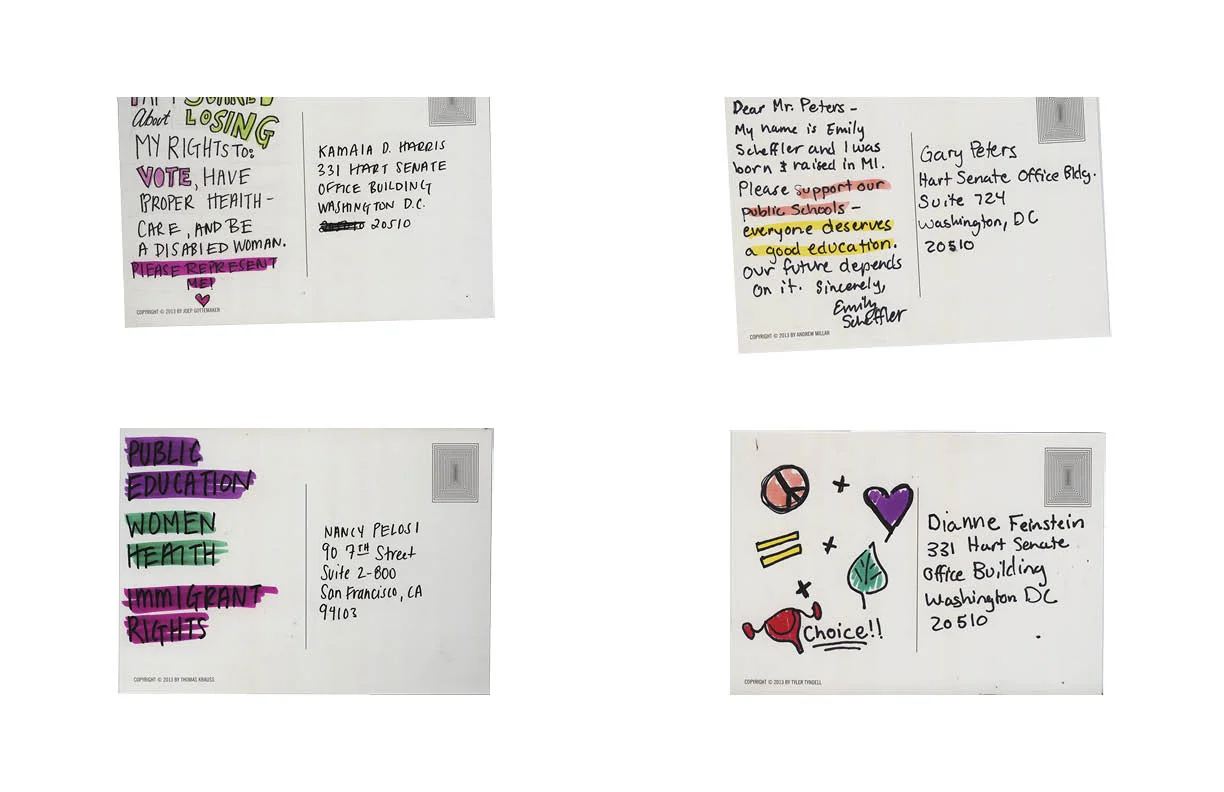 About LOSING
MY RIGHTS TO:
VOTE, HAVE
PROPER HEALTH-
CARE, AND BE
A DISABLED WOMAN.
PLEASE REPRESENT
ME!
COPYRIGHT © 2013 BY JOEP GOTTEMAKER
KAMALA D. HARRIS
331 HART SENATE
OFFICE BUILDING
WASHINGTON D.C.
20510
Dear Mr. Peters –
My name is Emily
Scheffler and I was
born & raised in MI.
Please support our
public schools –
everyone deserves
a good education.
Our future depends
on it. Sincerely,
Emily
Scheffler
COPYRIGHT © 2013 BY ANDREW MILLAR
Gary Peters
Hart Senate Office Bldg.
Suite 724
Washington, DC
20510
PUBLIC
EDUCATION
WOMEN
HEALTH
IMMIGRANT
RIGHTS
COPYRIGHT © 2013 BY THOMAS KRAUSS
NANCY PELOSI
90 7TH Street
Suite 2-800
San Francisco, CA
94103
+
= +
+
Choice!!
COPYRIGHT © 2013 BY TYLER TYNDELL
Dianne Feinstein
331 Hart Senate
Office Building
Washington DC
20510